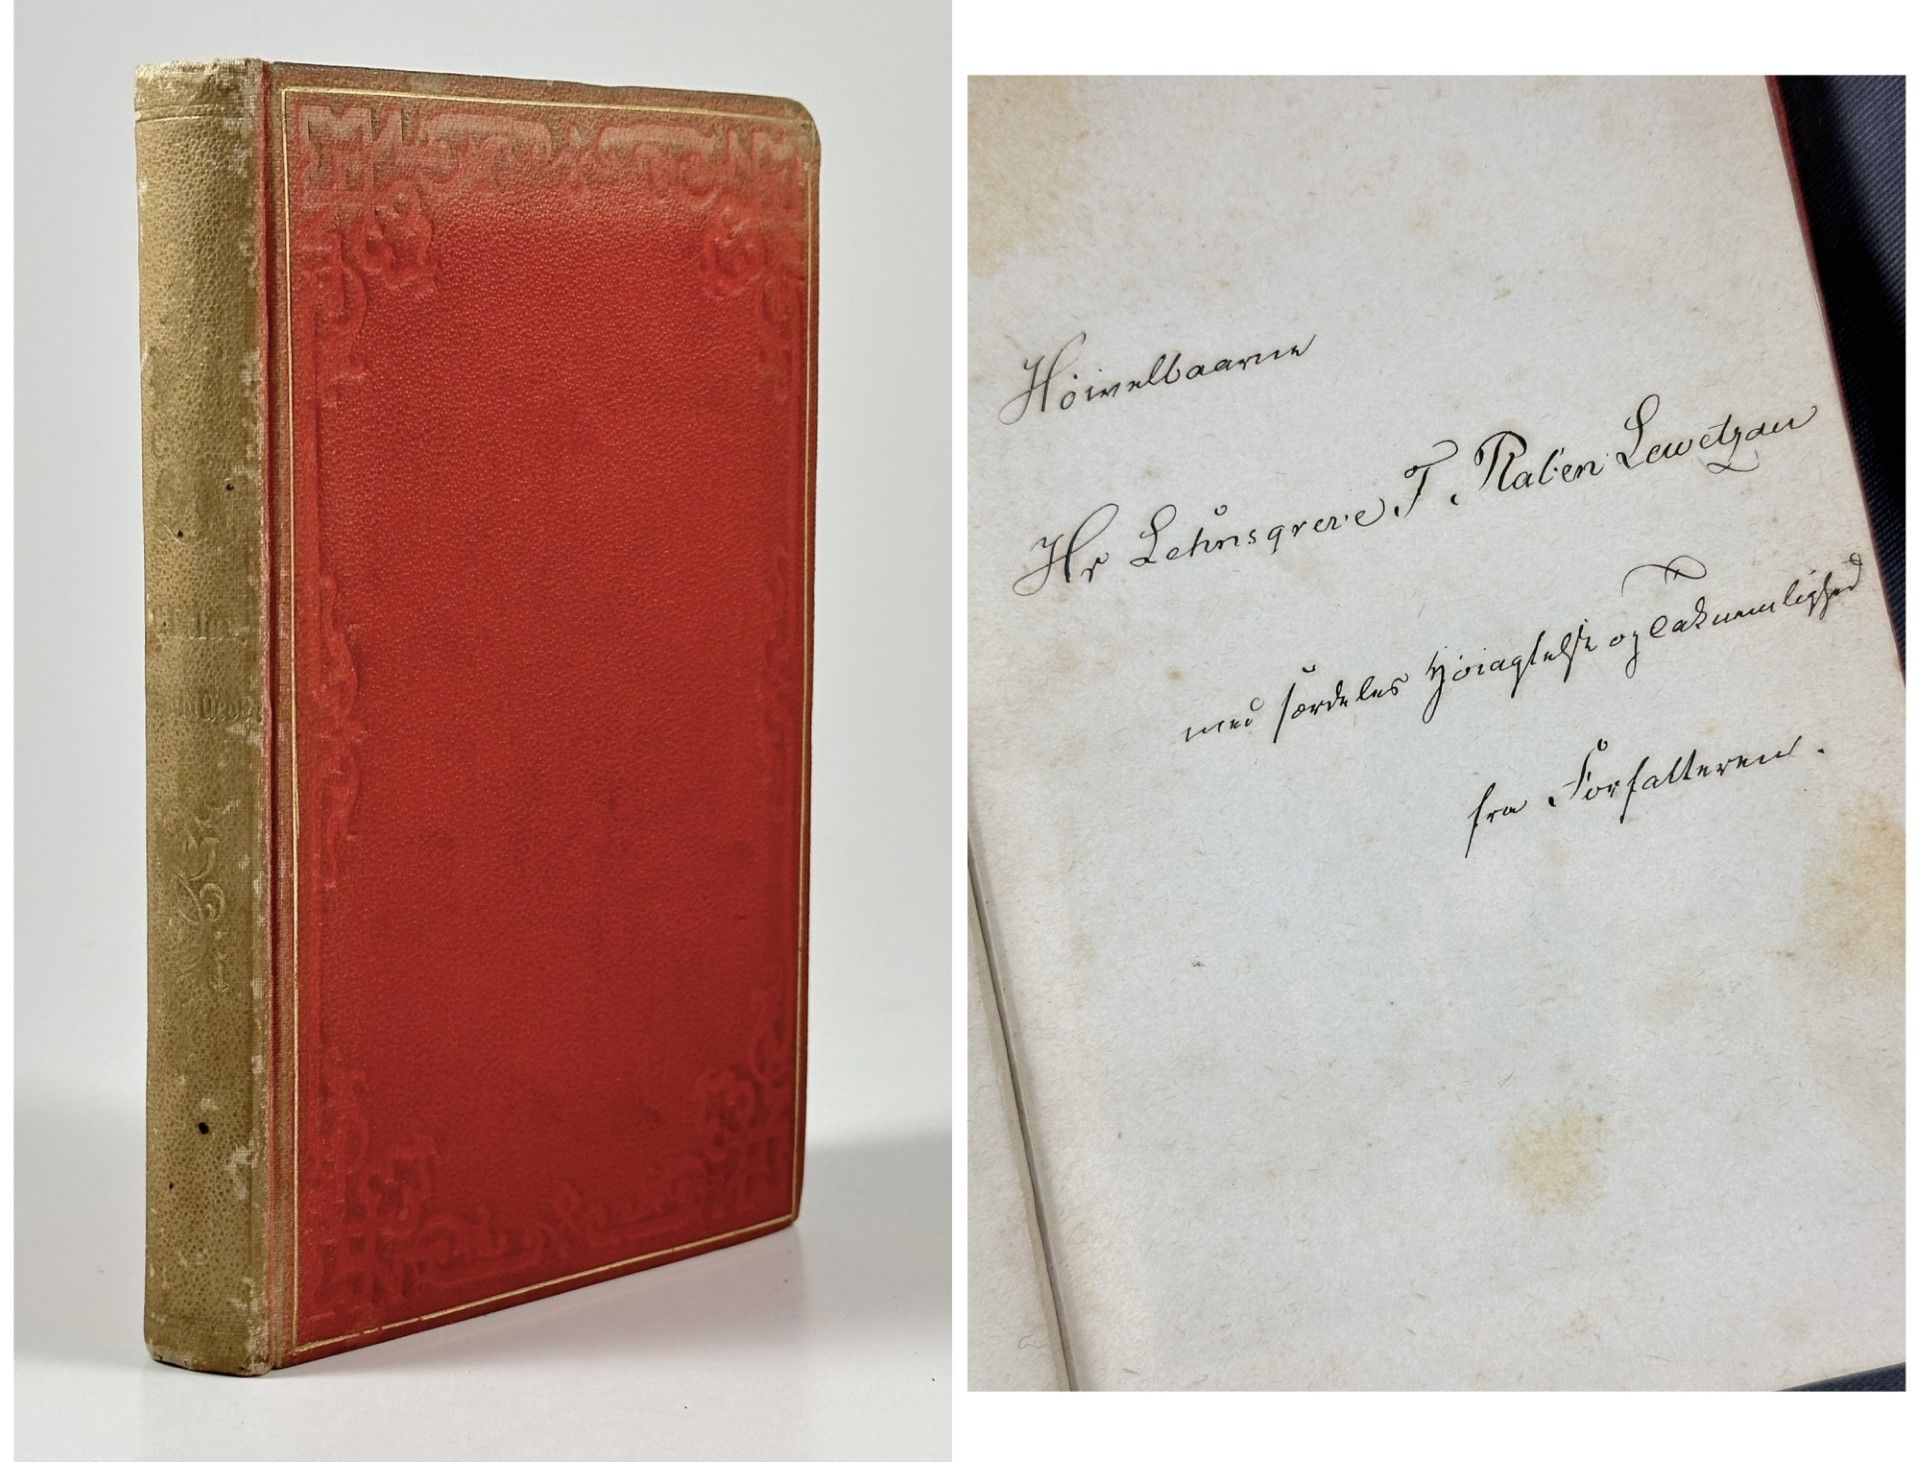 Höivelbaarne
Hr Lehnsgreve F. Raben Lewetzau
med særdeles Höiagtelse og Taknemlighed
fra Forfatteren.